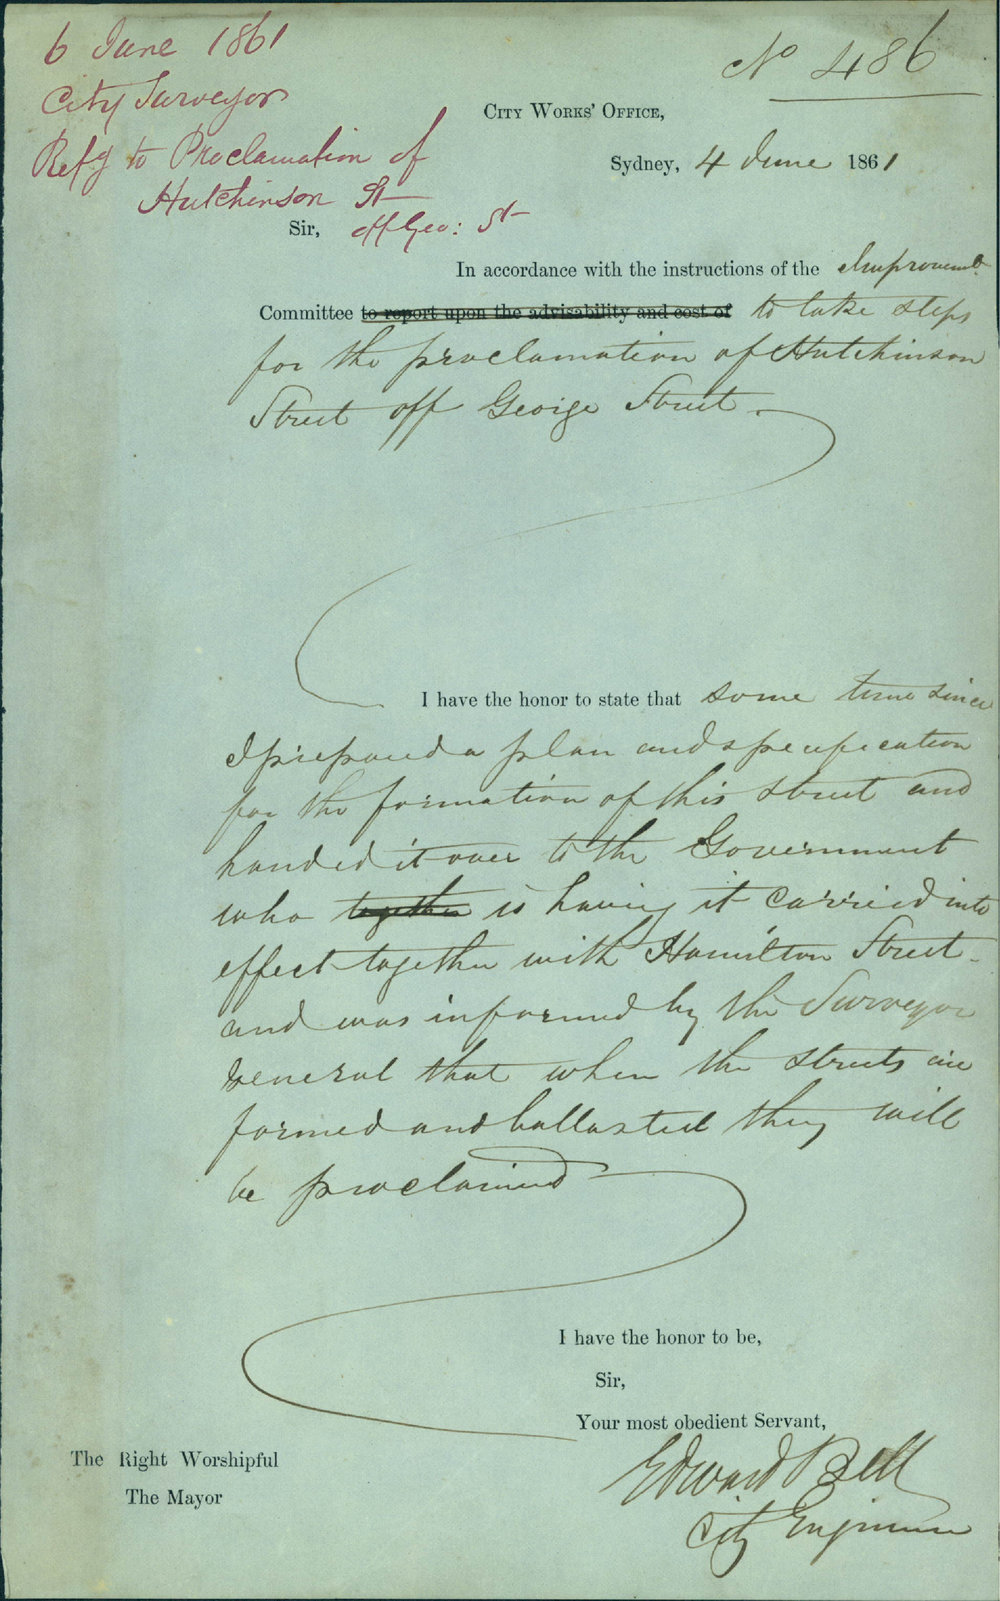 6 June 1861
City Surveyor
Refg to Proclamation of
Hutchinson St
off Geo: St
No 486
City Works' Office,
Sydney, 4 June 1861
Sir,
In accordance with the instructions of the Improvemt.
Committee to report upon the advisability and cost of to take steps
for the proclamation of Hutchinson
Street off George Street.
I have the honor to state that some time since
I prepared a plan and specification
for the formation of this street and
handed it over to the Government
who together is having it carried into
effect together with Hamilton Street.
and was informed by the Surveyor
General that when the streets are
formed and ballasted they will
be proclaimed
I have the honor to be,
Sir,
Your most obedient Servant,
Edward Bell
City Engineer
The Right Worshipful
The Mayor